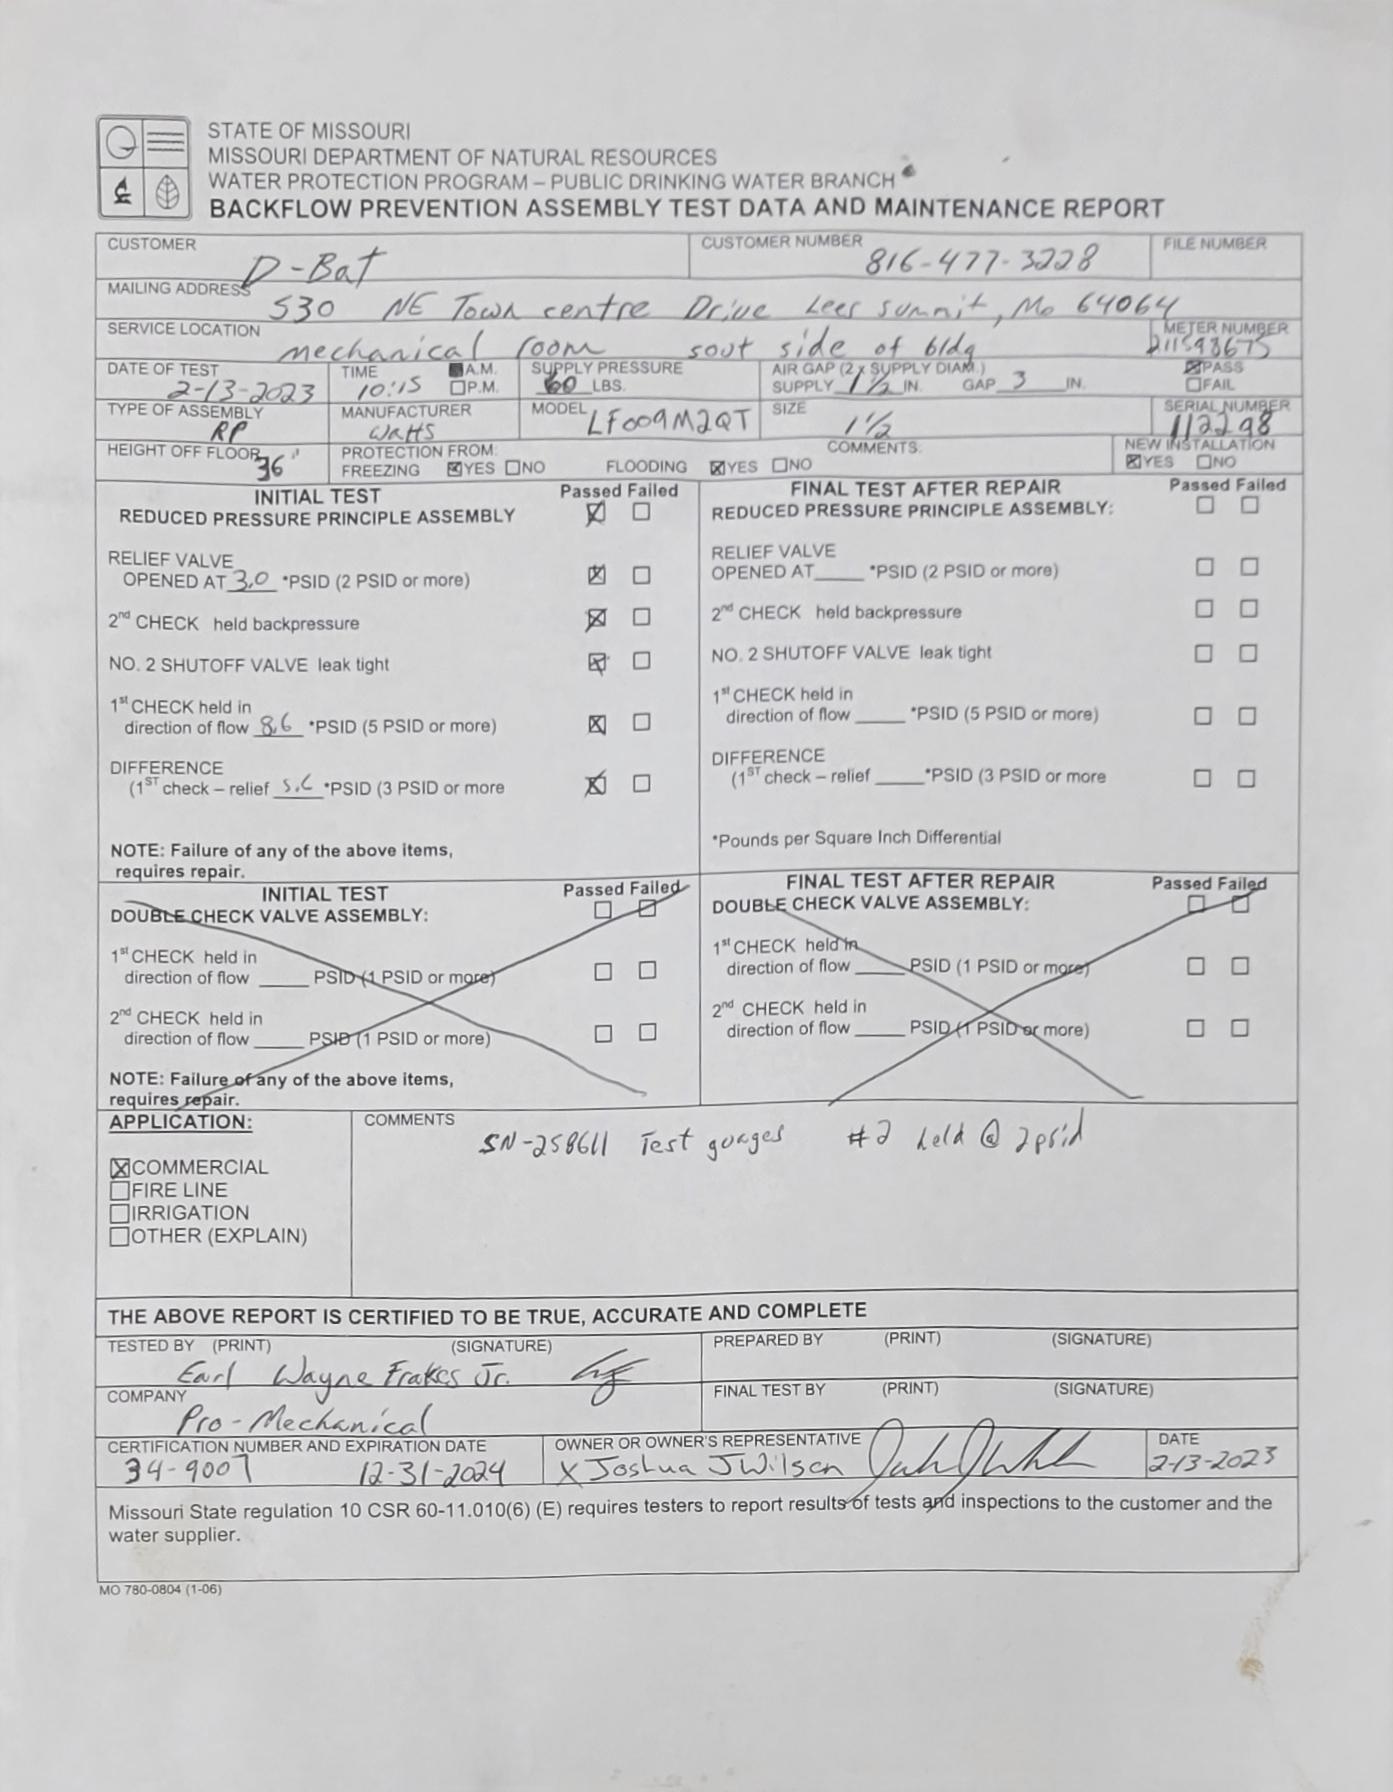 STATE OF MISSOURI
MISSOURI DEPARTMENT OF NATURAL RESOURCES
WATER PROTECTION PROGRAM – PUBLIC DRINKING WATER BRANCH
BACKFLOW PREVENTION ASSEMBLY TEST DATA AND MAINTENANCE REPORT
CUSTOMER D-Bat CUSTOMER NUMBER 816-477-3228 FILE NUMBER
MAILING ADDRESS 530 NE Town centre Drive Lees summit, Mo 64064
SERVICE LOCATION mechanical room sout side of bldg METER NUMBER 211598675
DATE OF TEST 2-13-2023 TIME 10:15 A.M. P.M. SUPPLY PRESSURE 60 LBS. AIR GAP (2 x SUPPLY DIAM.) SUPPLY 1 1/2 IN. GAP 3 IN. PASS FAIL
TYPE OF ASSEMBLY RP MANUFACTURER Watts MODEL LF009M2QT SIZE 1 1/2 SERIAL NUMBER 112298
HEIGHT OFF FLOOR 36" PROTECTION FROM: FREEZING YES NO FLOODING YES NO COMMENTS: NEW INSTALLATION YES NO
INITIAL TEST Passed Failed
REDUCED PRESSURE PRINCIPLE ASSEMBLY
RELIEF VALVE
OPENED AT 3.0 *PSID (2 PSID or more)
2nd CHECK held backpressure
NO. 2 SHUTOFF VALVE leak tight
1st CHECK held in
direction of flow 8.6 *PSID (5 PSID or more)
DIFFERENCE
(1ST check – relief 5.6 *PSID (3 PSID or more
NOTE: Failure of any of the above items,
requires repair.
FINAL TEST AFTER REPAIR Passed Failed
REDUCED PRESSURE PRINCIPLE ASSEMBLY:
RELIEF VALVE
OPENED AT____ *PSID (2 PSID or more)
2nd CHECK held backpressure
NO. 2 SHUTOFF VALVE leak tight
1st CHECK held in
direction of flow ____ *PSID (5 PSID or more)
DIFFERENCE
(1ST check – relief ____*PSID (3 PSID or more
*Pounds per Square Inch Differential
INITIAL TEST Passed Failed
DOUBLE CHECK VALVE ASSEMBLY:
1st CHECK held in
direction of flow ____ PSID (1 PSID or more)
2nd CHECK held in
direction of flow ____ PSID (1 PSID or more)
NOTE: Failure of any of the above items,
requires repair.
FINAL TEST AFTER REPAIR Passed Failed
DOUBLE CHECK VALVE ASSEMBLY:
1st CHECK held in
direction of flow ____ PSID (1 PSID or more)
2nd CHECK held in
direction of flow ____ PSID (1 PSID or more)
APPLICATION:
COMMERCIAL
FIRE LINE
IRRIGATION
OTHER (EXPLAIN)
COMMENTS
SN-258611 Test guages #2 held @ 2psid
THE ABOVE REPORT IS CERTIFIED TO BE TRUE, ACCURATE AND COMPLETE
TESTED BY (PRINT) (SIGNATURE) PREPARED BY (PRINT) (SIGNATURE)
Earl Wayne Frakes Jr.
COMPANY FINAL TEST BY (PRINT) (SIGNATURE)
Pro-Mechanical
CERTIFICATION NUMBER AND EXPIRATION DATE OWNER OR OWNER'S REPRESENTATIVE DATE
34-9007 12-31-2024 x Joshua J Wilson 2-13-2023
Missouri State regulation 10 CSR 60-11.010(6) (E) requires testers to report results of tests and inspections to the customer and the
water supplier.
MO 780-0804 (1-06)